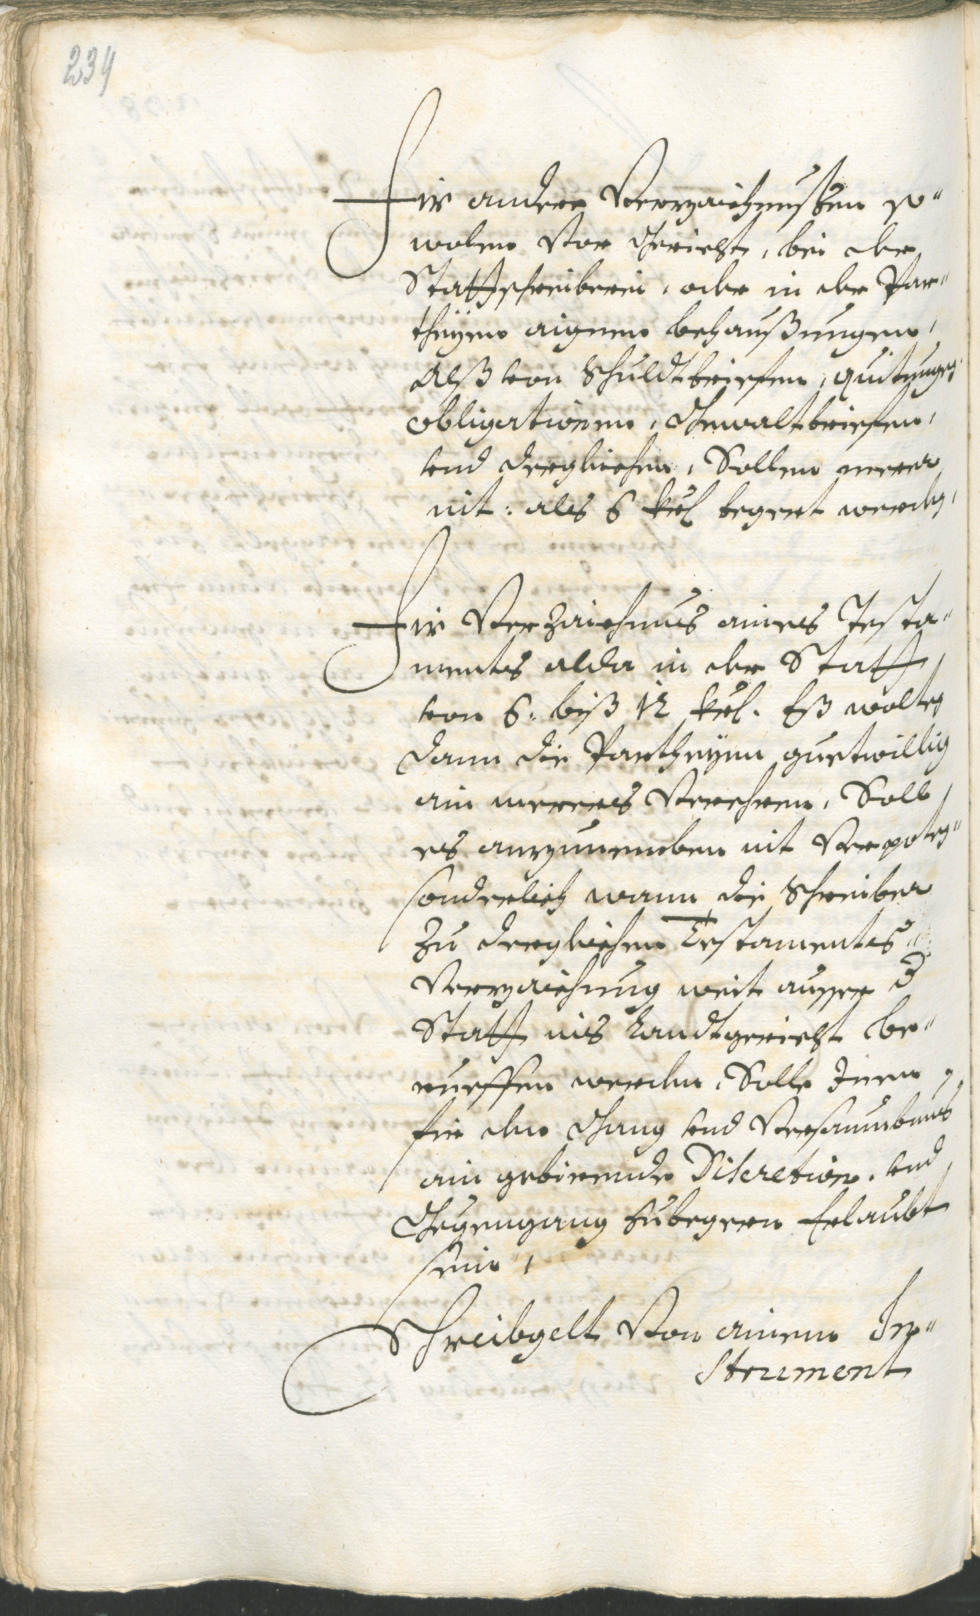 234
Fir andere Verzaichnußen so¬
wolen Vor Gericht, bei der
Statschreiberei, oder in der Par¬
theyen aignen behaußungen,
Alß von Schuldtbriefen, quitungen
obligationen, Gewaltbriefen,
vnd dergleichen, Sollen merer
nit: als 6 krl begert werden,
Fir Verzaichnus aines Testa¬
ments alda in der Statt
von 6. biß 12 krl. Eß wolten
dann die Partheyen guetwillig
ain mereres Verehren, Soll
es anzunemben nit Verpoten¬
sonderlich wann die Schreiber
zu dergleichen Testaments
Verzaichnung weit ausser d
Statt ins Landtgericht be¬
rueffen werden, Solle Inen
fir den Gang vnd Versaumbnus
ain gebirende Discretion. vnd
Gegengang zubegern Erlaubt
sein,
Schreibgelt Von ainem In¬
strument